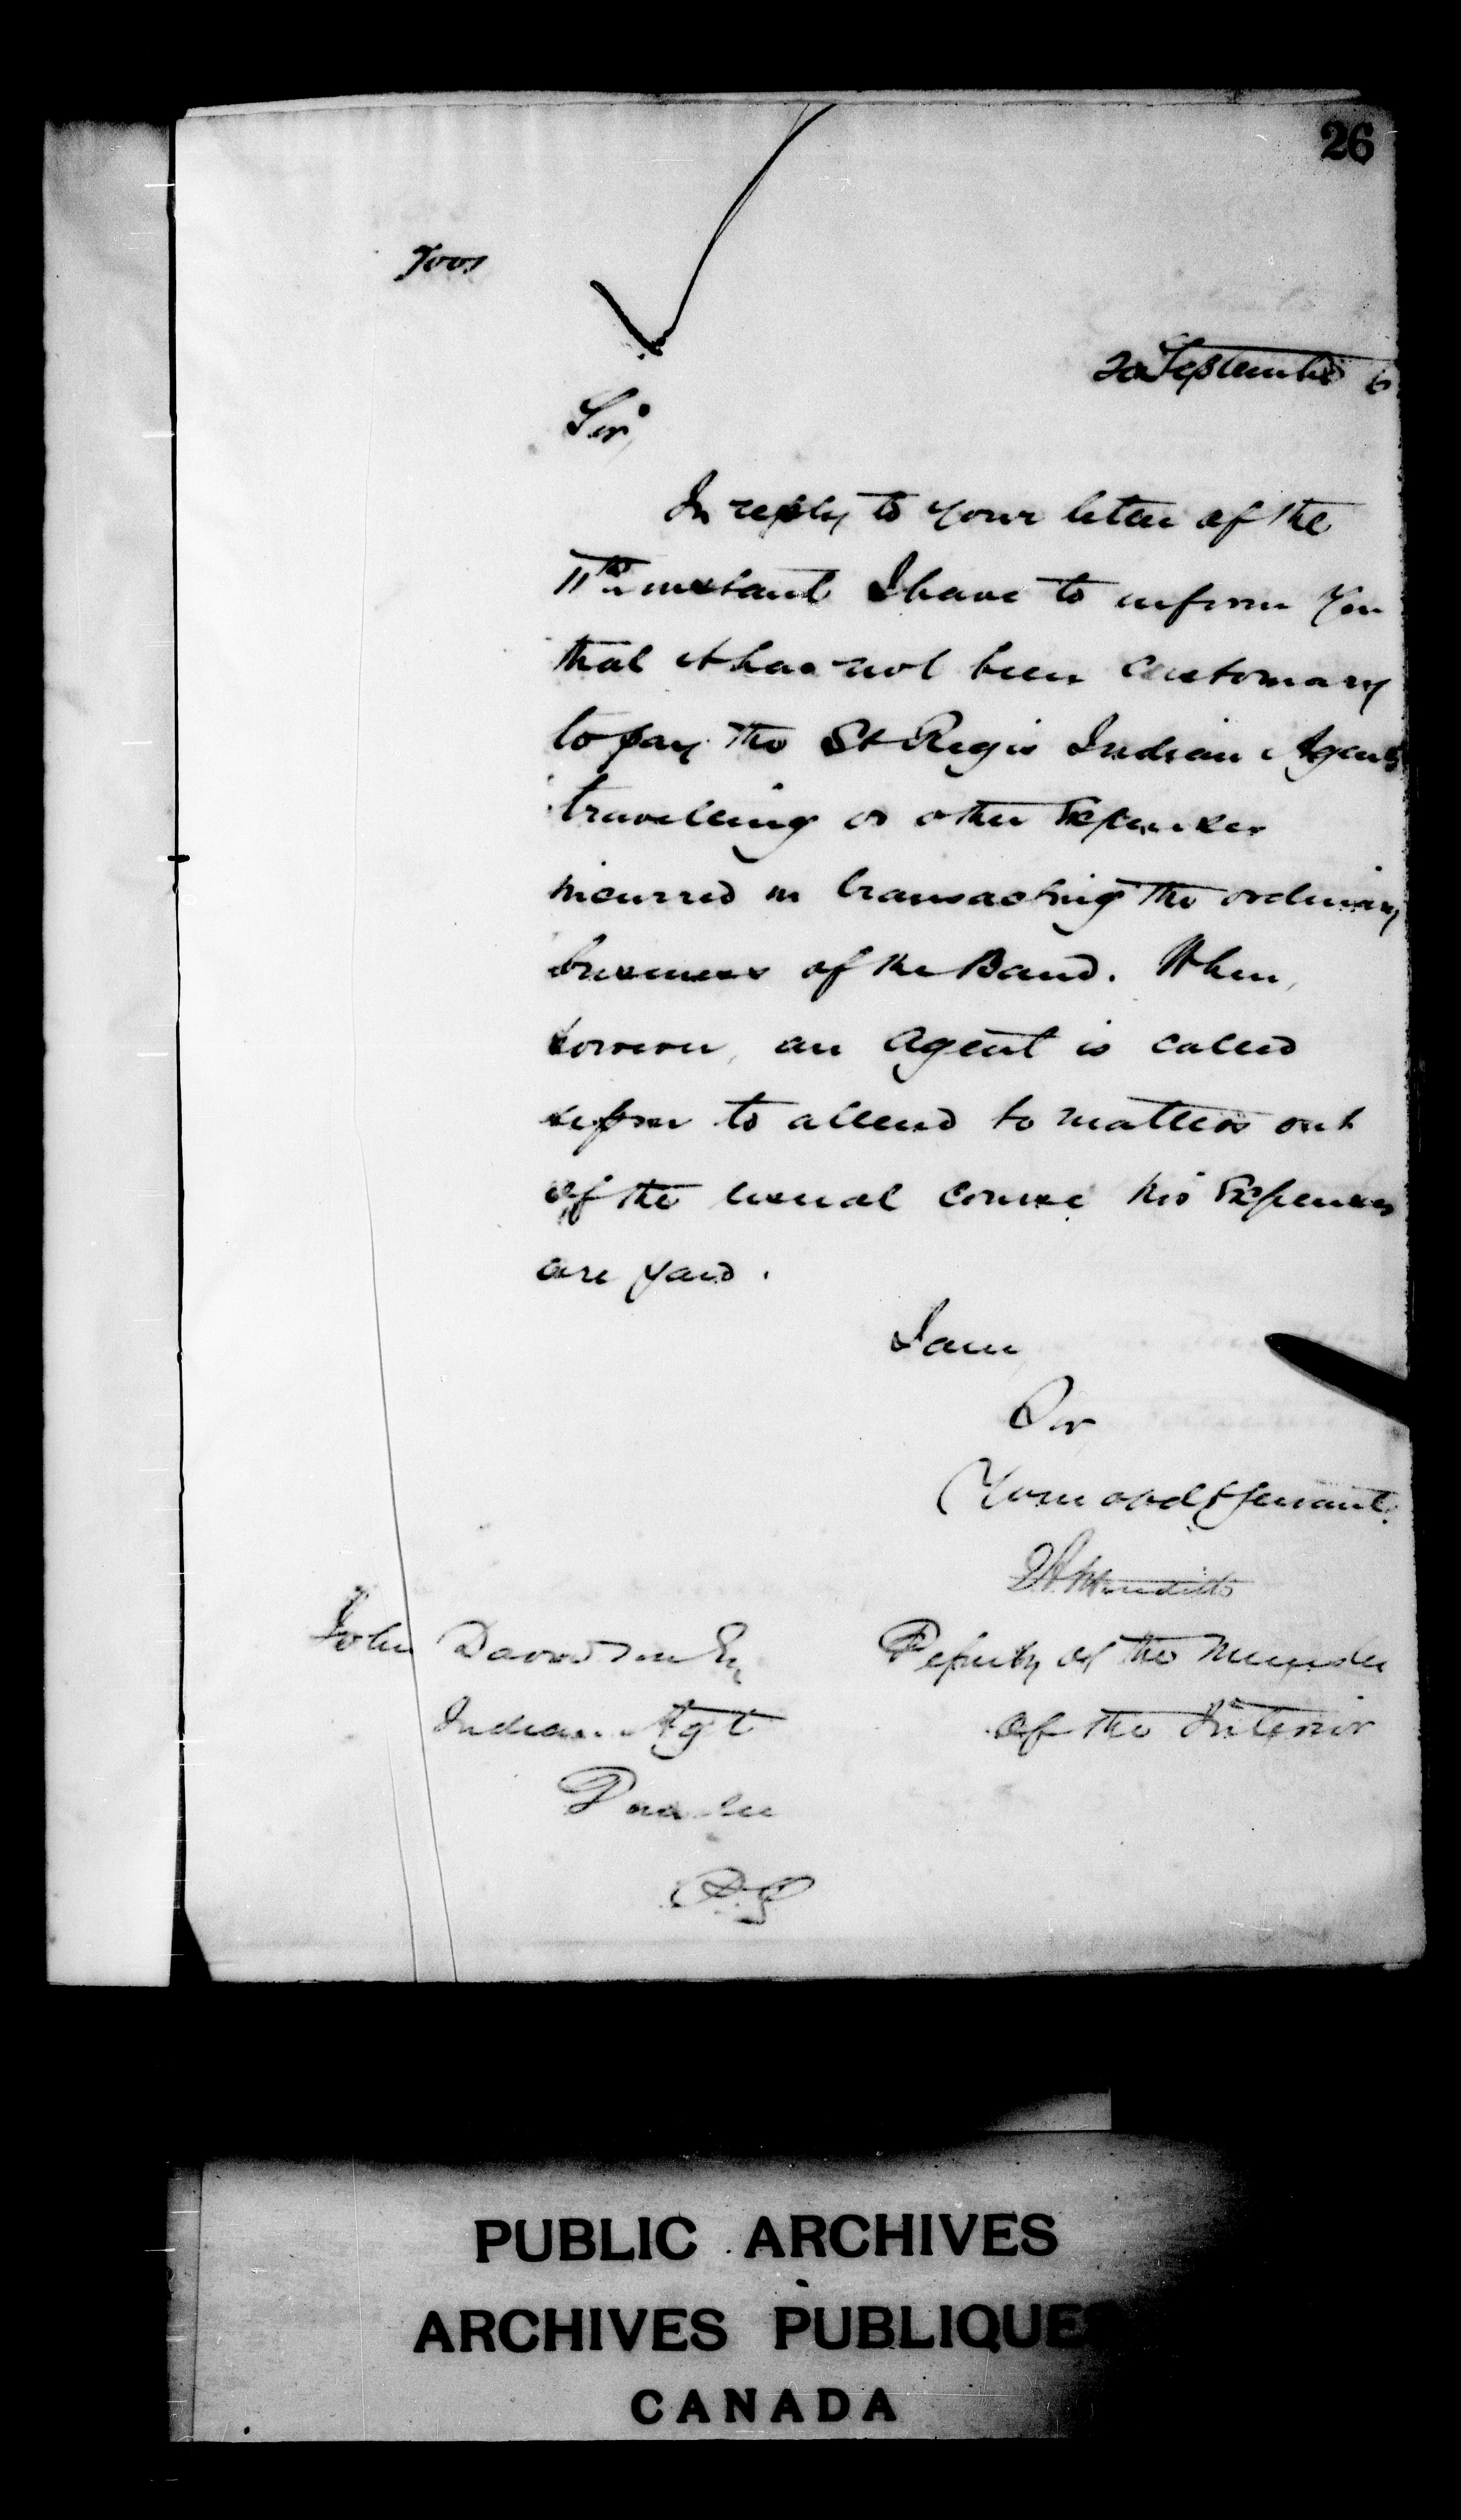 26
7001
20 September 6
Sir,
In reply to your letter of the
11th instant I have to inform you
that it has not been customary
to pay the St Regis Indian Agents
travelling or other Expenses
incurred in transacting the ordinary
business of the Band. When,
however, an agent is called
upon to attend to matters out
of the usual course his Expenses
are paid.
I am
Sir
Your obedt Servant
Meredith
John Davidson Esq
Deputy of the Minister
Indian Agt
of the Interior
Dundee
P.Q
PUBLIC ARCHIVES
ARCHIVES PUBLIQUES
CANADA